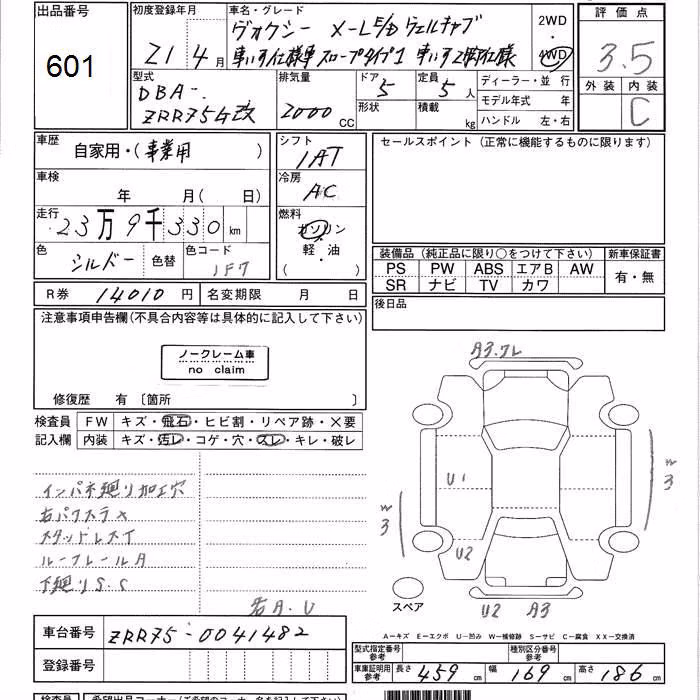 出品番号
601
初度登録年月
21年4月
車名・グレード
ヴォクシー X-L E/D ウェルチャブ
車いす仕様車 スロープタイプ1 車いす2脚仕様
2WD
4WD
評価点
3.5
外装 内装
C
型式
DBA-
ZRR75G改
排気量
2000 CC
ドア
5
形状
定員
5人
積載
kg
ディーラー・並行
モデル年式 年
ハンドル 左・右
車歴
自家用・(事業用 )
シフト
IAT
セールスポイント (正常に機能するものに限ります)
車検
年 月(日)
冷房
AC
走行
23万9千330km
燃料
ガソリン
軽・油
( )
色
シルバー
色替
色コード
1F7
装備品 (純正品に限り○をつけて下さい)
新車保証書
PS PW ABS エアB AW
SR ナビ TV カワ
有・無
R券 14010円
名変期限 月 日
後日品
注意事項申告欄(不具合内容等は具体的に記入して下さい)
ノークレーム車
no claim
修復歴 有 〔箇所 〕
検査員
記入欄
FW キズ・飛石・ヒビ割・リペア跡・×要
内装 キズ・汚レ・コゲ・穴・スレ・キレ・破レ
インパネ廻り加工穴
右バックスラ×
スタッドレスT
ルーフレールA
下廻りS.S
右A.U
A3.ワレ
U1
U2
W
3
W
3
U2 A3
スペア
A-キズ E-エクボ U-凹み W-補修跡 S-サビ C-腐食 XX-交換済
車台番号
ZRR75-0041482
登録番号
型式指定番号
参考
種別区分番号
参考
車庫証明用
参考
長さ 459cm
幅 169cm
高さ 186cm
検査員
希望出品コーナー(ご希望のコーナー名をご記入下さい)